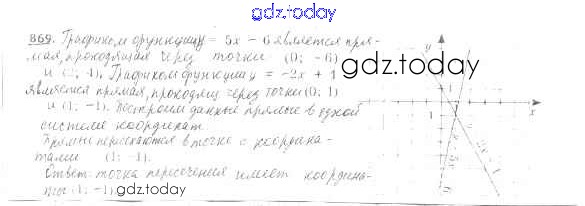 gdz.today
869. Графиком функции y = 5x - 6 является пря-
мая, проходящая через точки (0; -6)
и (2; 4). Графиком функции y = -2x + 1
является прямая, проходящ через точки (0; 1)
и (1; -1). Построим данные прямые в одной
системе координат.
Прямые пересекаются в точке с координа-
тами (1; -1).
Ответ: точка пересечения имеет координа-
ты (1; -1).
gdz.today
gdz.today
y
1
1
x